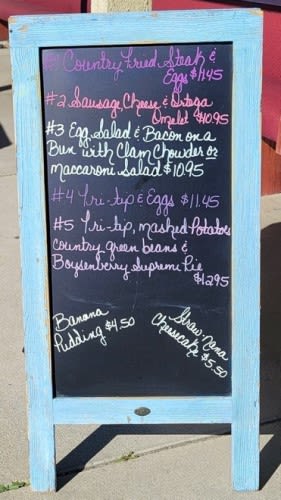 #1 Country Fried Steak &
Eggs $11.45
#2 Sausage, Cheese & Ortega
Omelet $10.95
#3 Egg Salad & Bacon on a
Bun with Clam Chowder or
Maccaroni Salad $10.95
#4 Tri-tip & Eggs $11.45
#5 Tri-tip, Mashed Potatoes
Country green beans &
Boysenberry Supreme Pie
$12.95
Banana
Pudding $4.50
Straw-Nana
Cheesecake $5.50